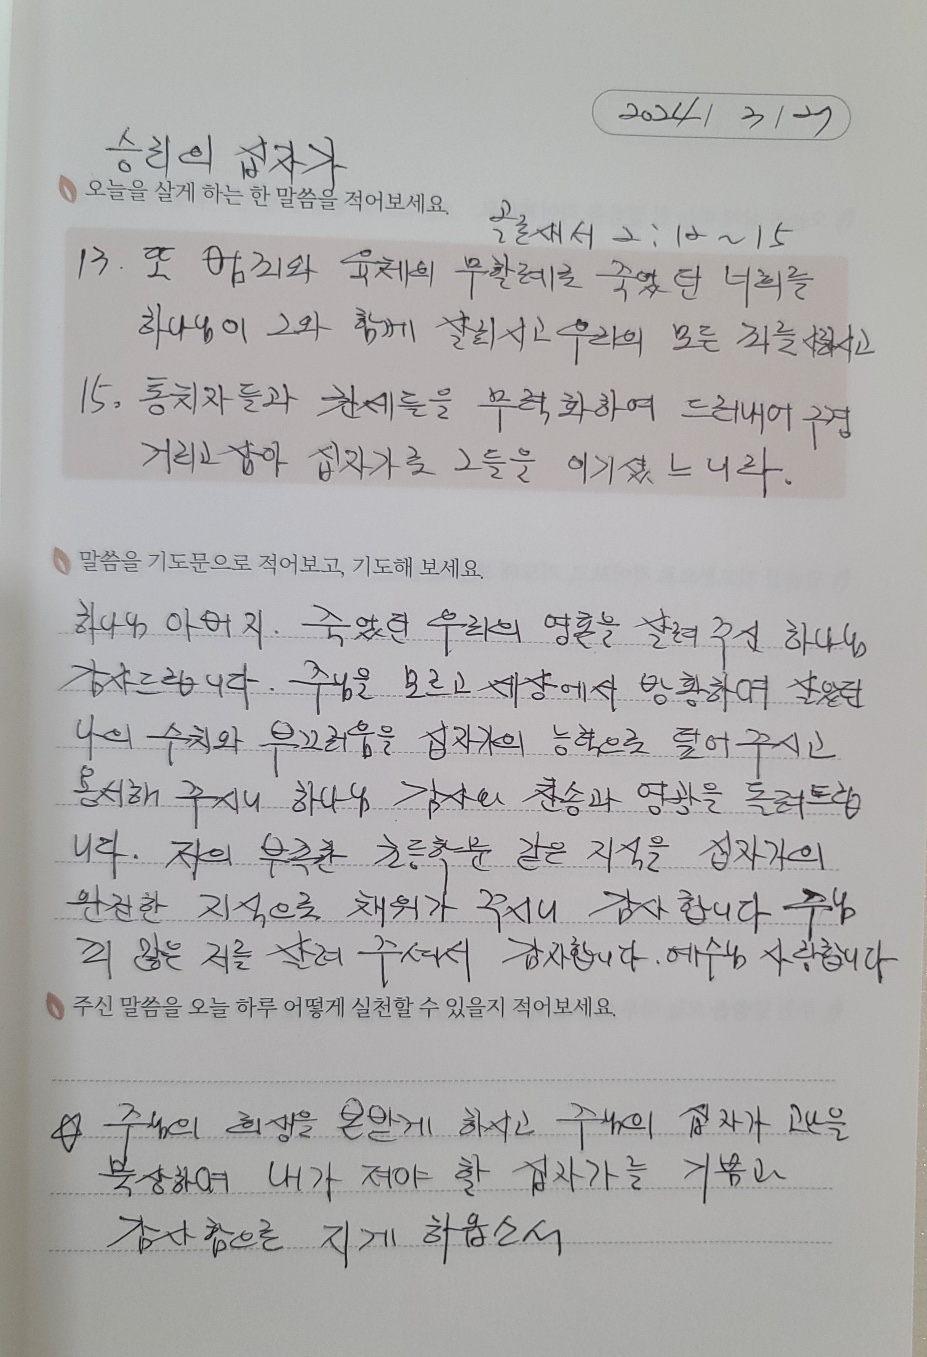 2024 / 3 / 27
승리의 십자가
오늘을 살게 하는 한 말씀을 적어보세요.
골로새서 2 : 12 ~ 15
13. 또 범죄와 육체의 무할례로 죽었던 너희를
하나님이 그와 함께 살리시고 우리의 모든 죄를 사하시고
15. 통치자들과 권세들을 무력화하여 드러내어 구경
거리로 삼아 십자가로 그들을 이기셨느니라.
말씀을 기도문으로 적어보고, 기도해 보세요.
하나님 아버지. 죽었던 우리의 영혼을 살려 주신 하나님
감사드립니다. 주님을 모르고 세상에서 방황하며 살았던
나의 수치와 부끄러움을 십자가의 능력으로 덮어 주시고
용서해 주시니 하나님 감사와 찬송과 영광을 돌려드립
니다. 저의 부족한 초등학문 같은 지식을 십자가의
완전한 지식으로 채워가 주시니 감사합니다 주님
죄 많은 저를 살려 주셔서 감사합니다. 예수님 사랑합니다
주신 말씀을 오늘 하루 어떻게 실천할 수 있을지 적어보세요.
주님의 희생을 본받게 하시고 주님의 십자가 고난을
묵상하며 내가 져야 할 십자가를 기쁨과
감사함으로 지게 하옵소서